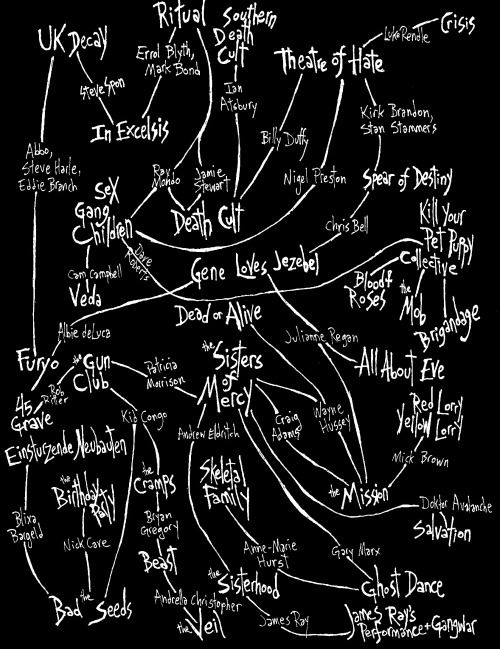 Ritual
Southern
Death
Cult
Crisis
Luke Rendle
UK Decay
Errol Blyth,
Mark Bond
Theatre of Hate
Steve Spon
Ian
Astbury
Kirk Brandon,
Stan Stammers
In Excelsis
Billy Duffy
Abbo,
Steve Harle,
Eddie Branch
Ray
Mondo
Jamie
Stewart
Nigel Preston
Spear of Destiny
Sex
Gang
Children
Death Cult
Chris Bell
Kill Your
Pet Puppy
Collective
Dave
Roberts
Gene Loves Jezebel
Cam Campbell
Veda
Blood &
Roses
the
Mob
Brigandage
Dead or Alive
Albie deLuca
Julianne Regan
Furyo
the Gun
Club
Patricia
Morrison
the
Sisters
of
Mercy
All About Eve
Rob
Ritter
45
Grave
Kid Congo
Andrew Eldritch
Craig
Adams
Wayne
Hussey
Red Lorry
Yellow Lorry
Einsturzende Neubauten
Mick Brown
the
Birthday
Party
the
Cramps
Skeletal
Family
the Mission
Doktor Avalanche
Blixa
Bargeld
Bryan
Gregory
Salvation
Nick Cave
Anne-Marie
Hurst
Gary Marx
Beast
Bad the Seeds
the
Sisterhood
Ghost Dance
Andrella Christopher
the Veil
James Ray
James Ray's
Performance + Gangwar